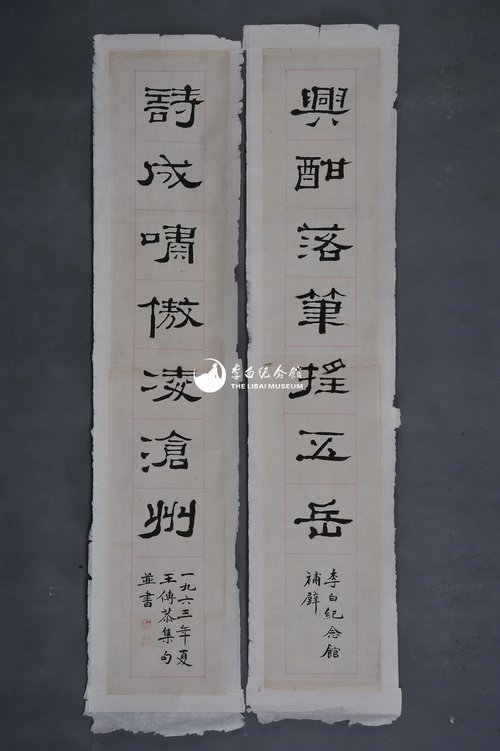 興酣落筆摇五岳
李白紀念館
補壁
詩成嘯傲凌滄州
一九六三年夏
王傳恭集句
並書
李白纪念館
THE LIBAI MUSEUM